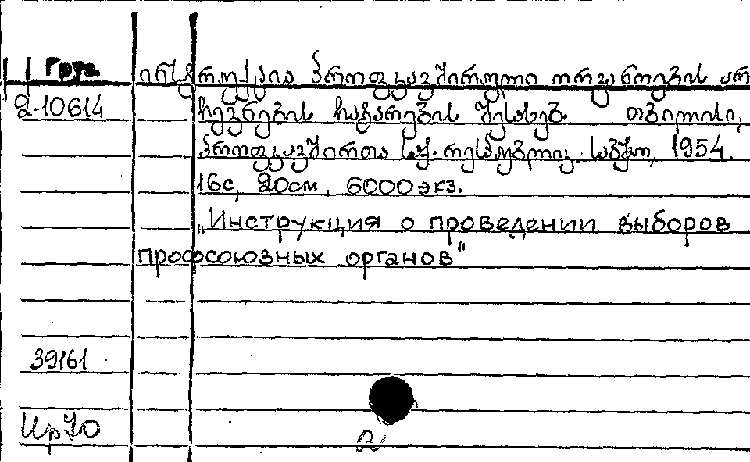 Груз.
ინსტრუქცია პროფკავშირული ორგანოების არ
2-10614 ჩევნების ჩატარების შესახებ თბილისი,
პროფკავშირთა საქ. რესპუბლიკ. საბჭო, 1954.
16с, 20см, 6000 экз.
„Инструкция о проведении выборов
профсоюзных органов"
39161